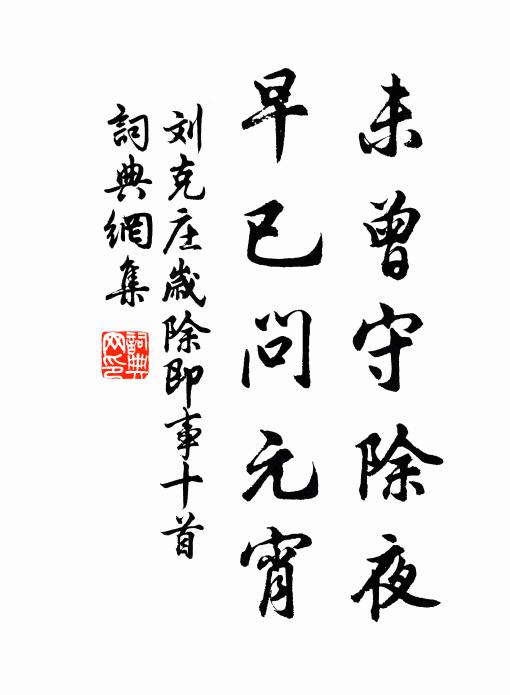 未曾守除夜
早已问元宵
刘克庄歲除即事十首
詞典網集
詞典網印